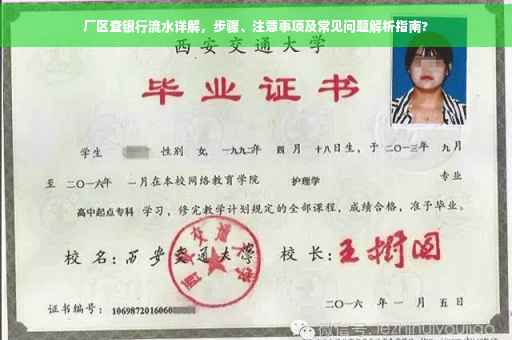 厂区查银行流水详解，步骤、注意事项及常见问题解析指南?
西安交通大学
毕业证书
学生 性别 女, 一九九二年 四月 十八日生, 于二〇一三年 九月
至 二〇一六年 一月在本校网络教育学院 护理学 专业
高中起点专科 学习, 修完教学计划规定的全部课程, 成绩合格, 准予毕业。
校名: 西安交通大学 校长: 王树国
西安交通大学
证书编号: 1069872016060
二〇一六年 一月 五日
微信号: jezhihuiyoujiao